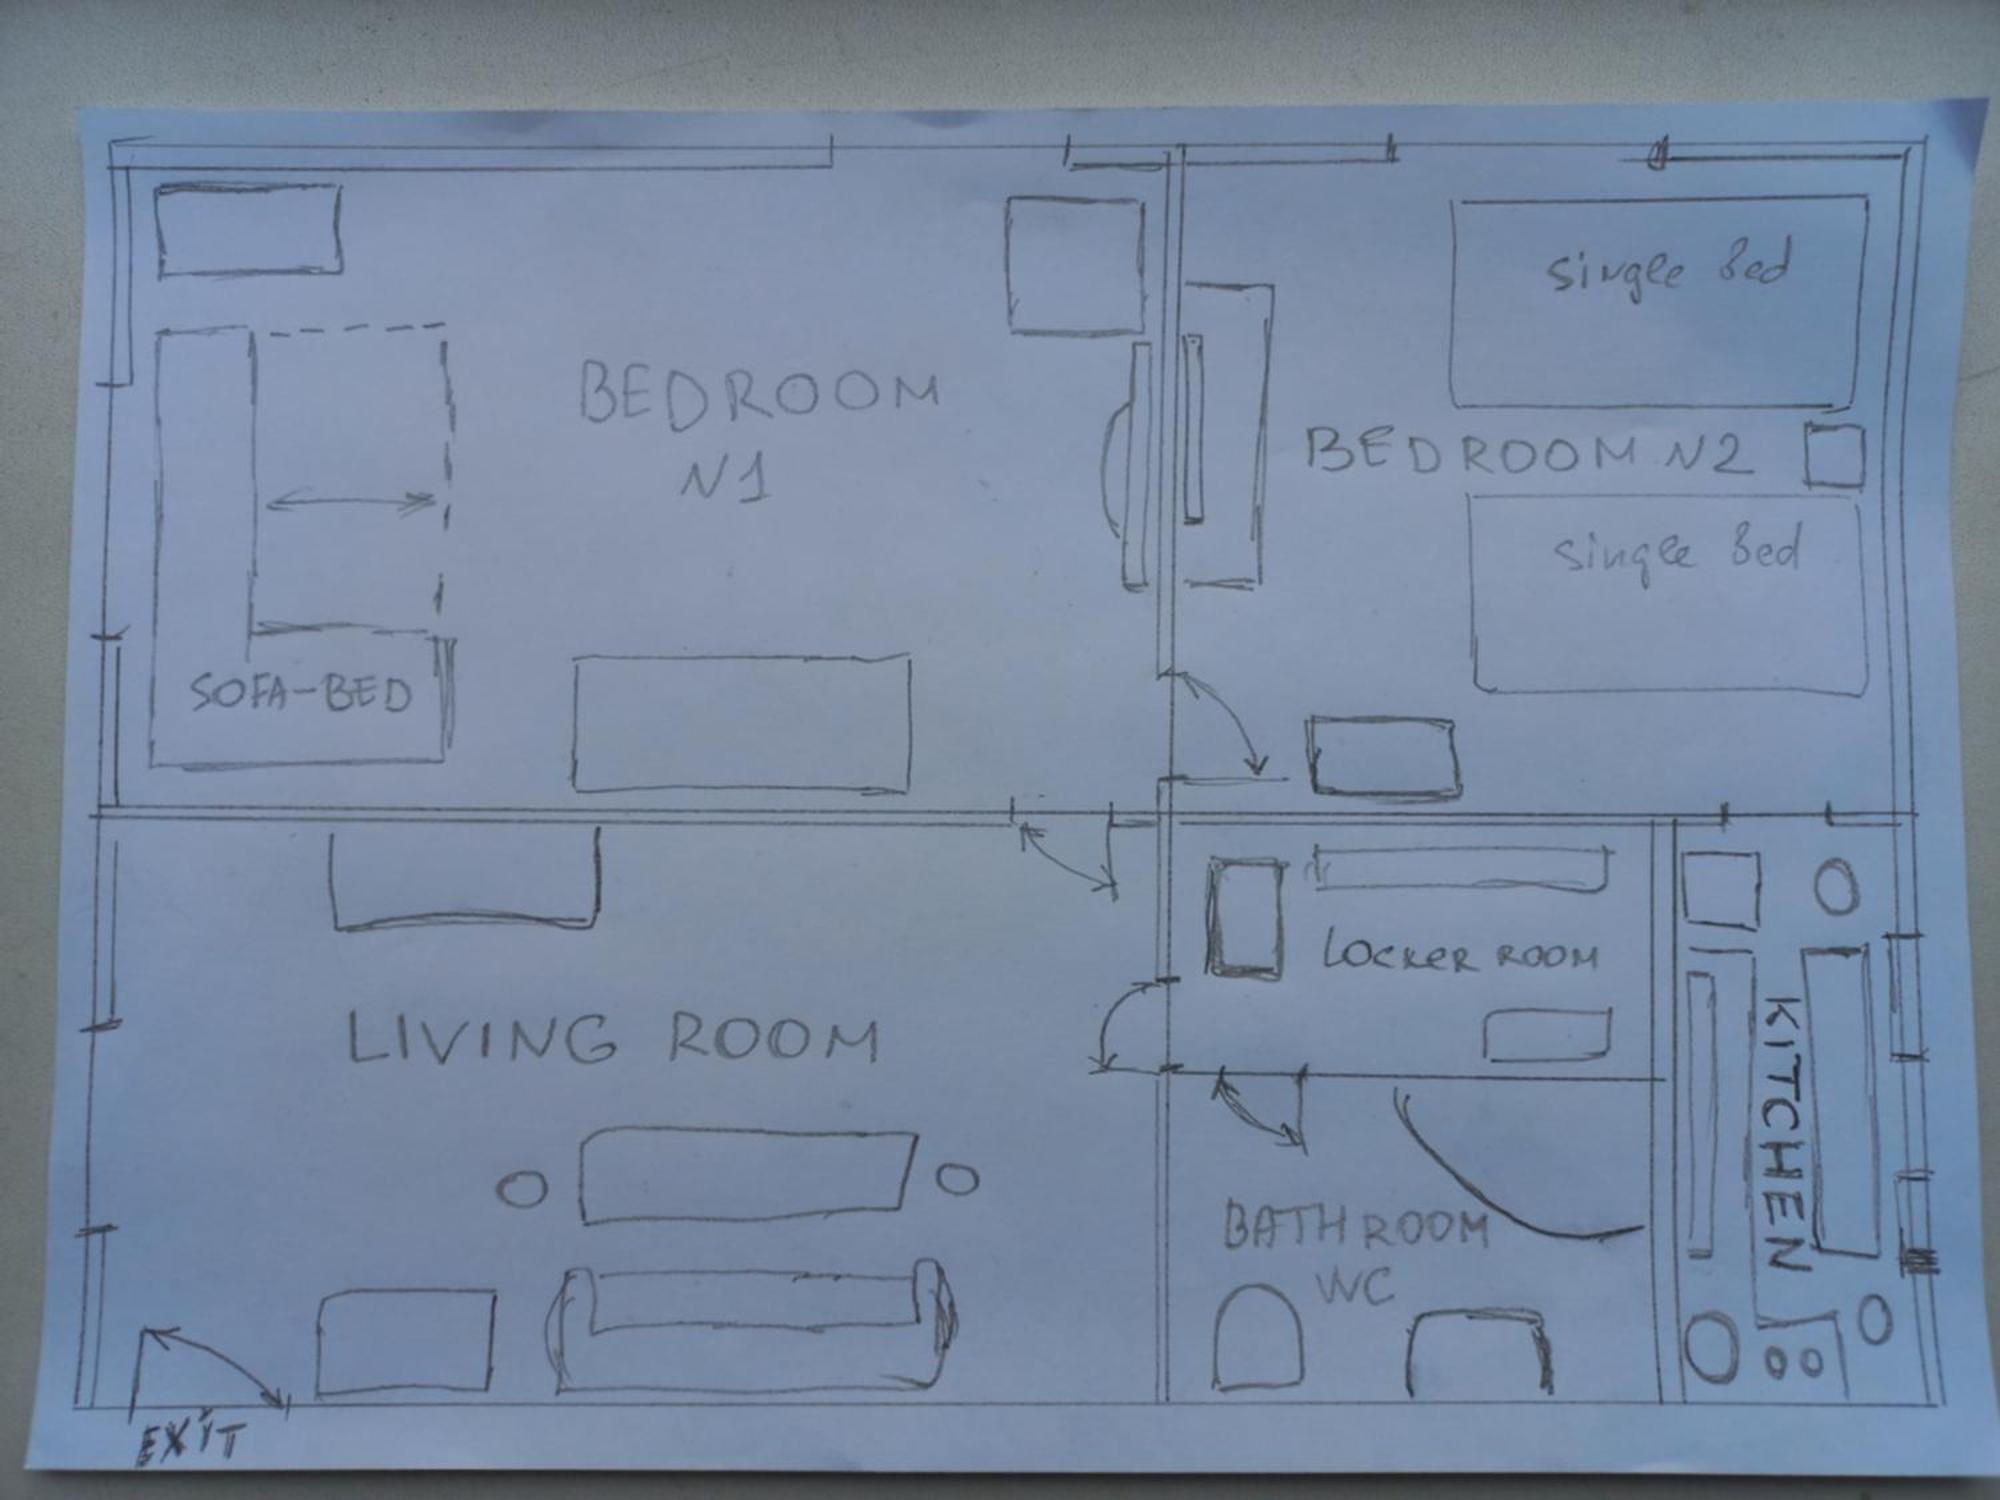 single Bed
BEDROOM
N1
BEDROOM N2
single Bed
SOFA-BED
LOCKER ROOM
LIVING ROOM
KITCHEN
BATHROOM
WC
EXIT